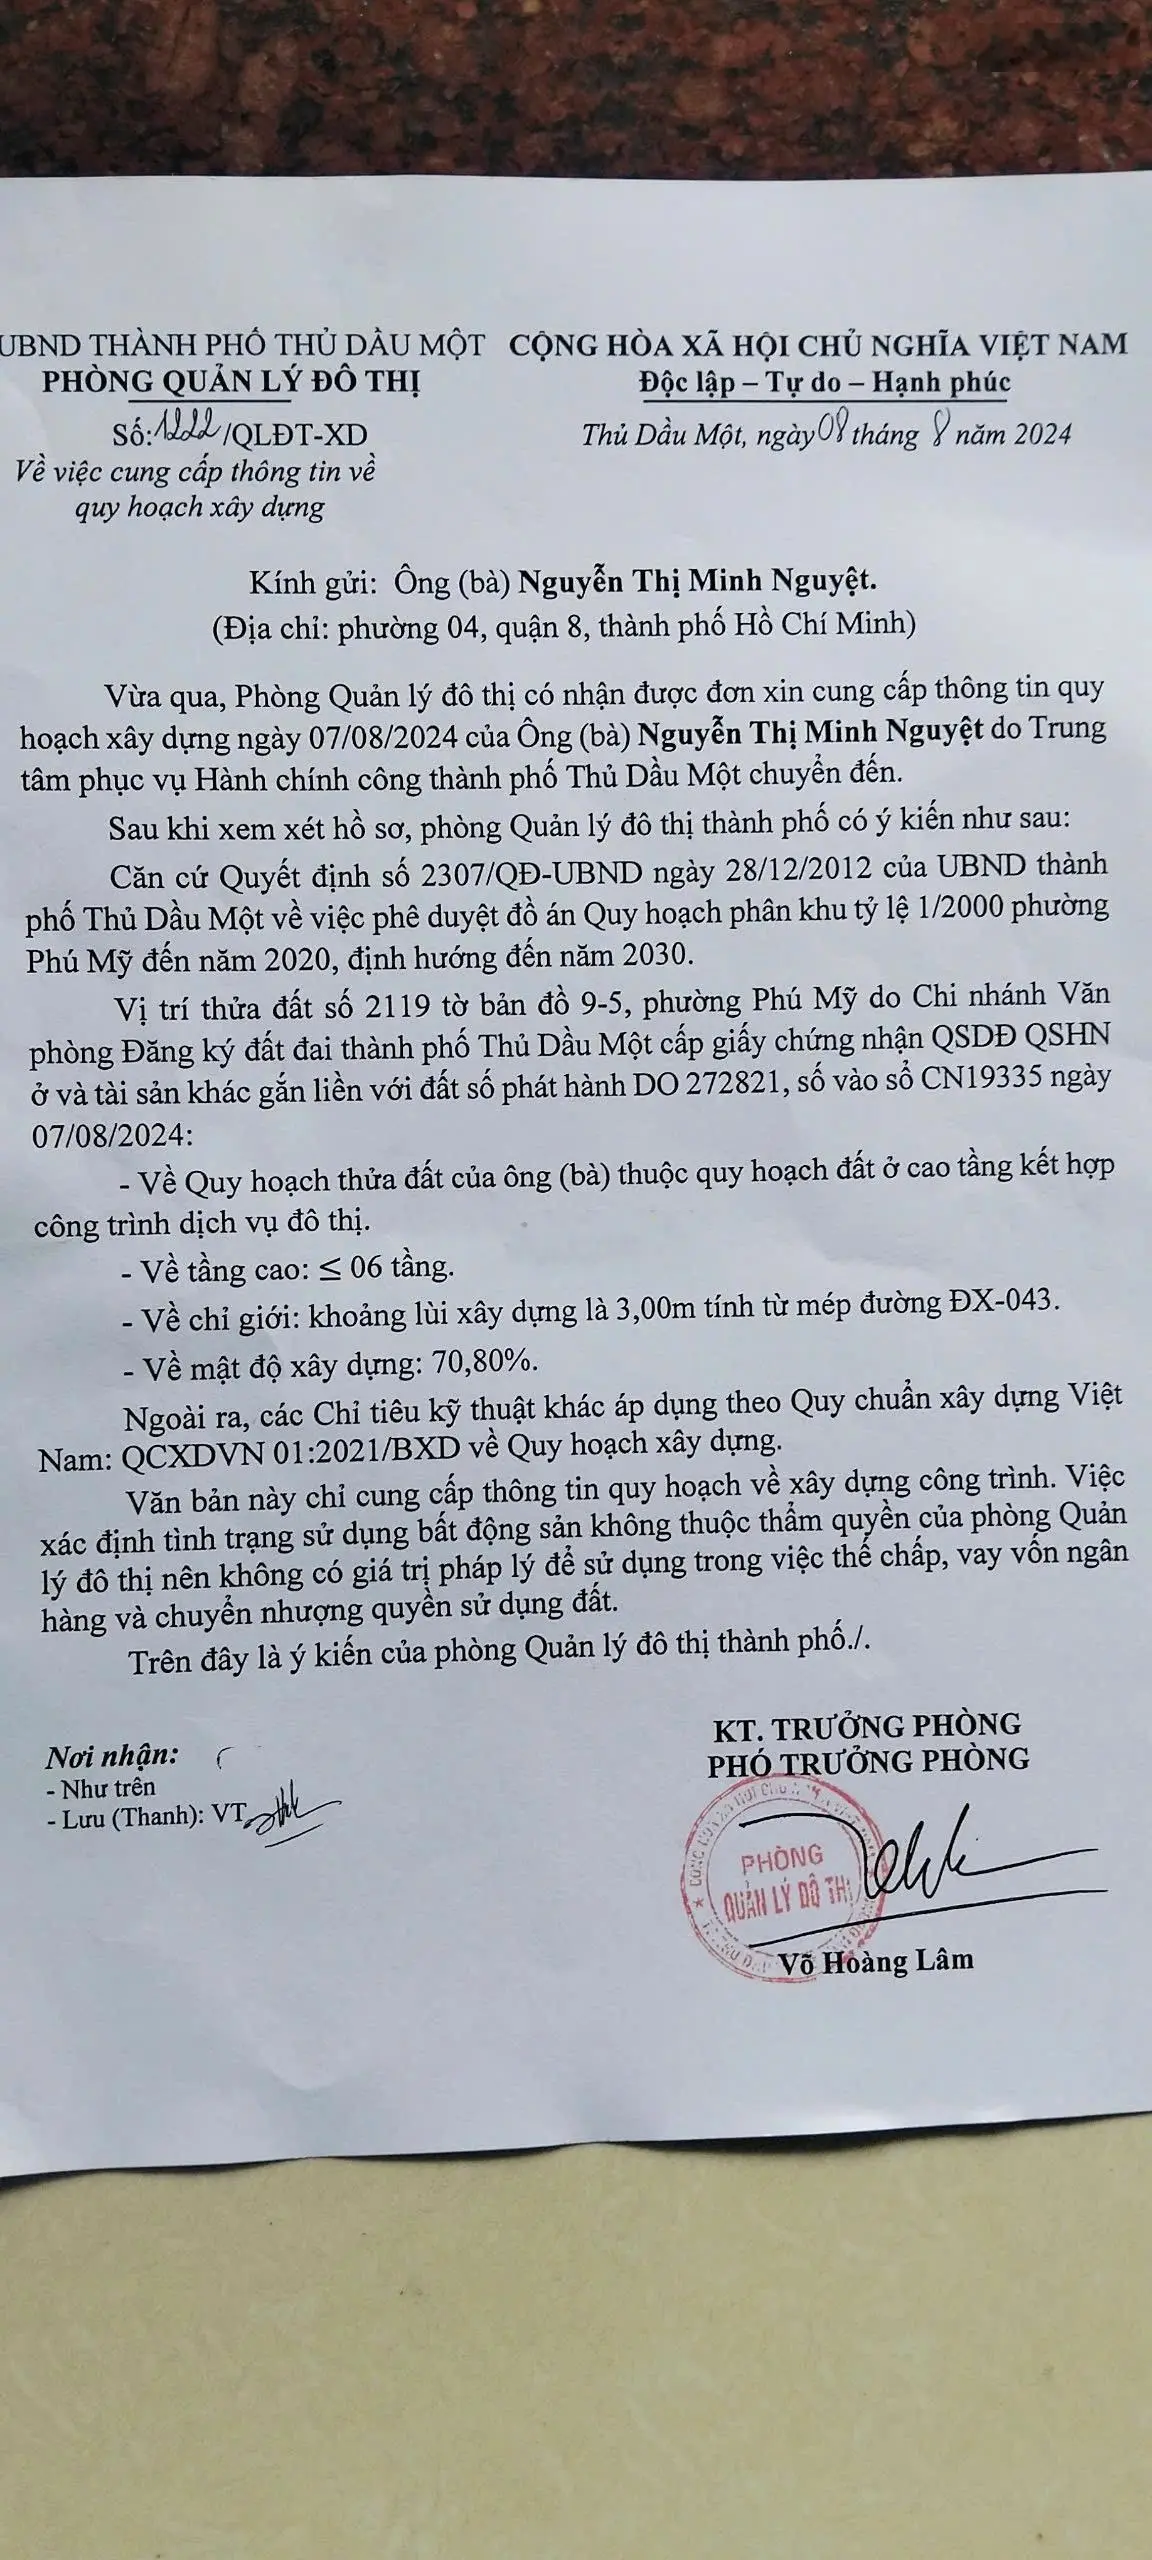 UBND THÀNH PHỐ THỦ DẦU MỘT
PHÒNG QUẢN LÝ ĐÔ THỊ
Số: 1222/QLĐT-XD
Về việc cung cấp thông tin về
quy hoạch xây dựng
CỘNG HÒA XÃ HỘI CHỦ NGHĨA VIỆT NAM
Độc lập – Tự do – Hạnh phúc
Thủ Dầu Một, ngày 08 tháng 8 năm 2024
Kính gửi: Ông (bà) Nguyễn Thị Minh Nguyệt.
(Địa chỉ: phường 04, quận 8, thành phố Hồ Chí Minh)
Vừa qua, Phòng Quản lý đô thị có nhận được đơn xin cung cấp thông tin quy
hoạch xây dựng ngày 07/08/2024 của Ông (bà) Nguyễn Thị Minh Nguyệt do Trung
tâm phục vụ Hành chính công thành phố Thủ Dầu Một chuyển đến.
Sau khi xem xét hồ sơ, phòng Quản lý đô thị thành phố có ý kiến như sau:
Căn cứ Quyết định số 2307/QĐ-UBND ngày 28/12/2012 của UBND thành
phố Thủ Dầu Một về việc phê duyệt đồ án Quy hoạch phân khu tỷ lệ 1/2000 phường
Phú Mỹ đến năm 2020, định hướng đến năm 2030.
Vị trí thửa đất số 2119 tờ bản đồ 9-5, phường Phú Mỹ do Chi nhánh Văn
phòng Đăng ký đất đai thành phố Thủ Dầu Một cấp giấy chứng nhận QSDĐ QSHN
ở và tài sản khác gắn liền với đất số phát hành DO 272821, số vào sổ CN19335 ngày
07/08/2024:
- Về Quy hoạch thửa đất của ông (bà) thuộc quy hoạch đất ở cao tầng kết hợp
công trình dịch vụ đô thị.
- Về tầng cao: ≤ 06 tầng.
- Về chỉ giới: khoảng lùi xây dựng là 3,00m tính từ mép đường ĐX-043.
- Về mật độ xây dựng: 70,80%.
Ngoài ra, các Chỉ tiêu kỹ thuật khác áp dụng theo Quy chuẩn xây dựng Việt
Nam: QCXDVN 01:2021/BXD về Quy hoạch xây dựng.
Văn bản này chỉ cung cấp thông tin quy hoạch về xây dựng công trình. Việc
xác định tình trạng sử dụng bất động sản không thuộc thẩm quyền của phòng Quản
lý đô thị nên không có giá trị pháp lý để sử dụng trong việc thế chấp, vay vốn ngân
hàng và chuyển nhượng quyền sử dụng đất.
Trên đây là ý kiến của phòng Quản lý đô thị thành phố./.
Nơi nhận:
- Như trên
- Lưu (Thanh): VT
KT. TRƯỞNG PHÒNG
PHÓ TRƯỞNG PHÒNG
PHÒNG
QUẢN LÝ ĐÔ THỊ
Võ Hoàng Lâm